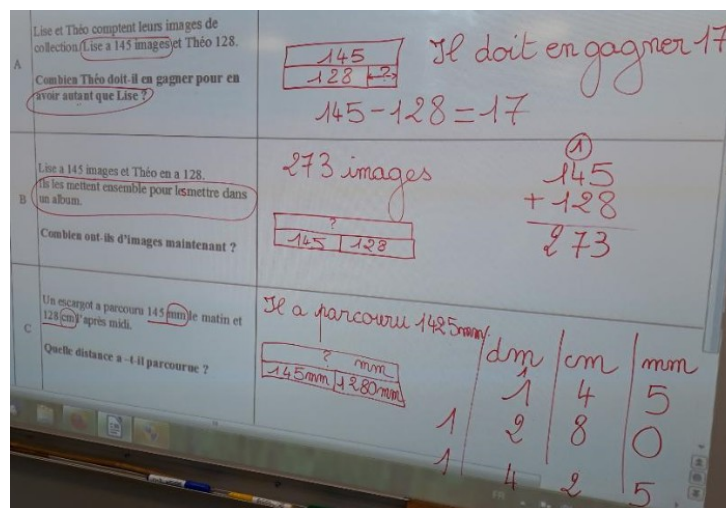 A
Lise et Théo comptent leurs images de
collection. Lise a 145 images et Théo 128.
Combien Théo doit-il en gagner pour en
avoir autant que Lise ?
145
128 ?
Il doit en gagner 17
145 - 128 = 17
B
Lise a 145 images et Théo en a 128.
Ils les mettent ensemble pour les mettre dans
un album.
Combien ont-ils d'images maintenant ?
273 images
?
145 128
1
145
+ 128
273
C
Un escargot a parcouru 145 mm le matin et
128 cm l'après midi.
Quelle distance a-t-il parcourue ?
Il a parcouru 1425mm.
? mm
145mm 1280mm
dm cm mm
1
1 4 5
1 2 8 0
1 4 2 5
FR